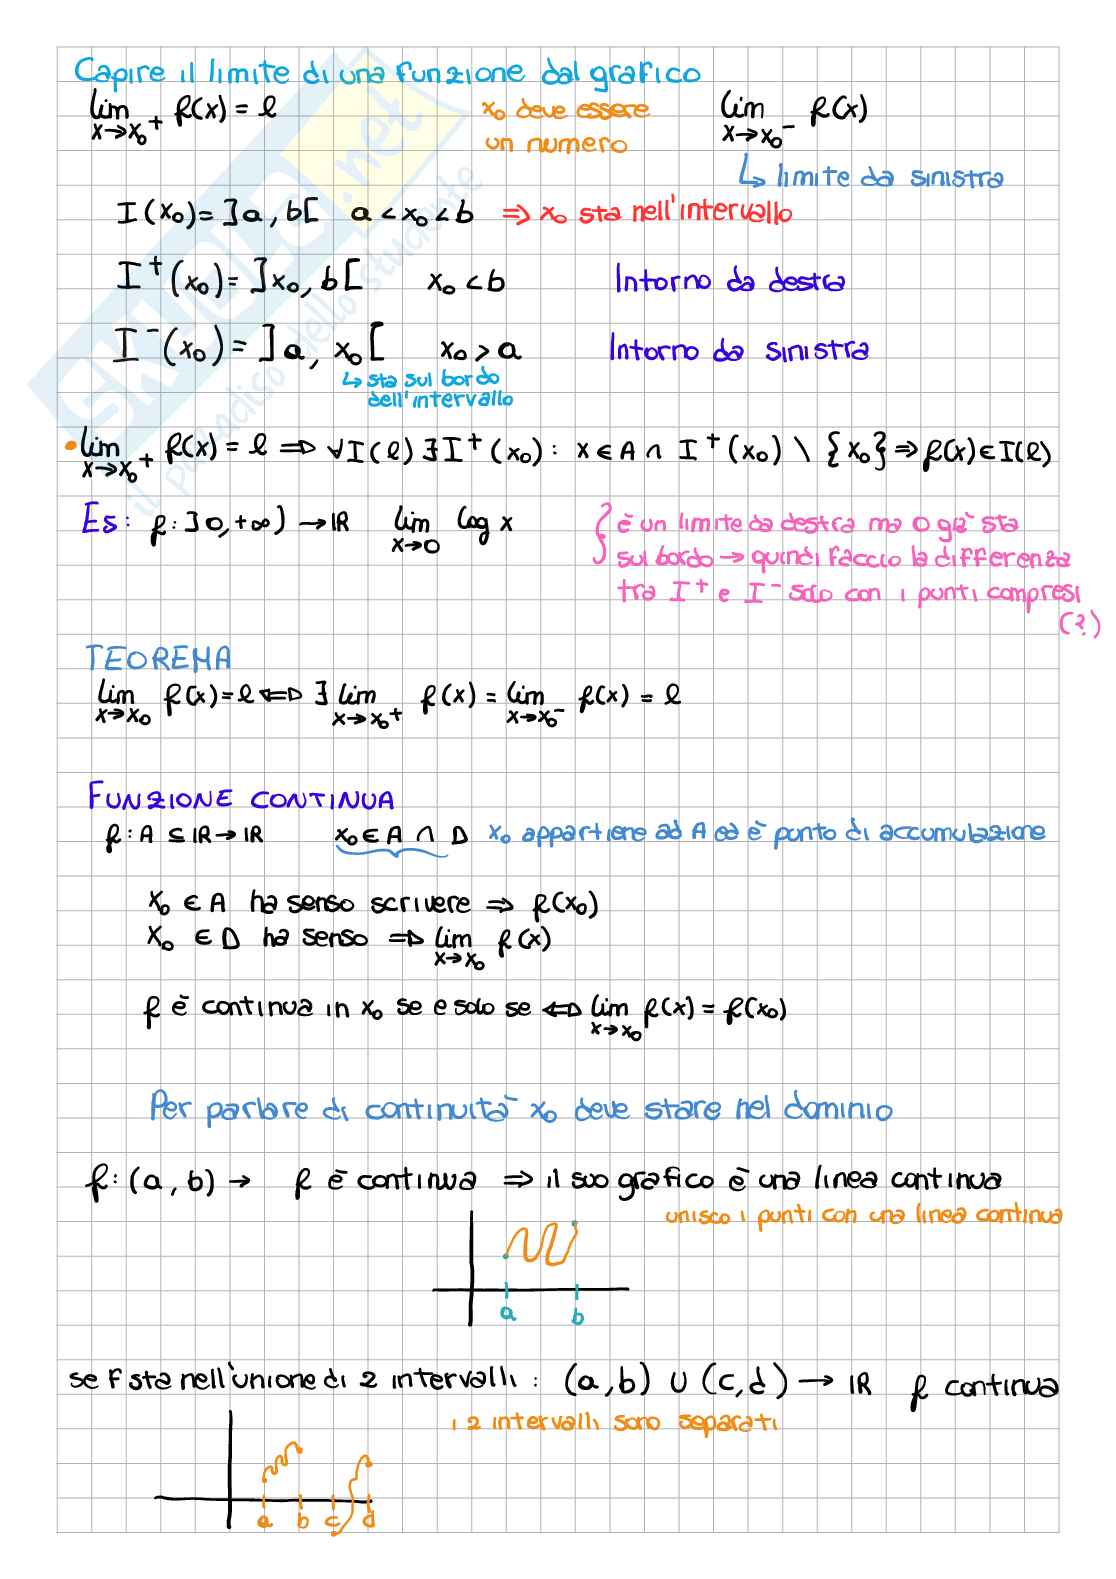 Capire il limite di una funzione dal grafico
lim x→x₀⁺ f(x) = l
x₀ deve essere
un numero
lim x→x₀⁻ f(x)
↳ limite da sinistra
I(x₀) = ]a, b[ a < x₀ < b ⇒ x₀ sta nell'intervallo
I⁺(x₀) = ]x₀, b[ x₀ < b Intorno da destra
I⁻(x₀) = ]a, x₀[ x₀ > a Intorno da sinistra
↳ sta sul bordo
dell'intervallo
• lim x→x₀⁺ f(x) = l ⇒ ∀I(l) ∃I⁺(x₀) : x ∈ A ∩ I⁺(x₀) \ {x₀} ⇒ f(x) ∈ I(l)
Es: f: ]0, +∞) → IR lim x→0 log x
{ è un limite da destra ma 0 già sta
sul bordo → quindi faccio la differenza
tra I⁺ e I⁻ solo con i punti compresi
(?)
TEOREMA
lim x→x₀ f(x) = l ⇔ ∃ lim x→x₀⁺ f(x) = lim x→x₀⁻ f(x) = l
FUNZIONE CONTINUA
f: A ⊆ IR → IR x₀ ∈ A ∩ D x₀ appartiene ad A ed è punto di accumulazione
x₀ ∈ A ha senso scrivere ⇒ f(x₀)
x₀ ∈ D ha senso ⇒ lim x→x₀ f(x)
f è continua in x₀ se e solo se ⇔ lim x→x₀ f(x) = f(x₀)
Per parlare di continuità x₀ deve stare nel dominio
f: (a, b) → f è continua ⇒ il suo grafico è una linea continua
unisco i punti con una linea continua
a b
se F sta nell'unione di 2 intervalli : (a, b) ∪ (c, d) → IR f continua
i 2 intervalli sono separati
a b c d
skuola.net
il paradiso dello studente